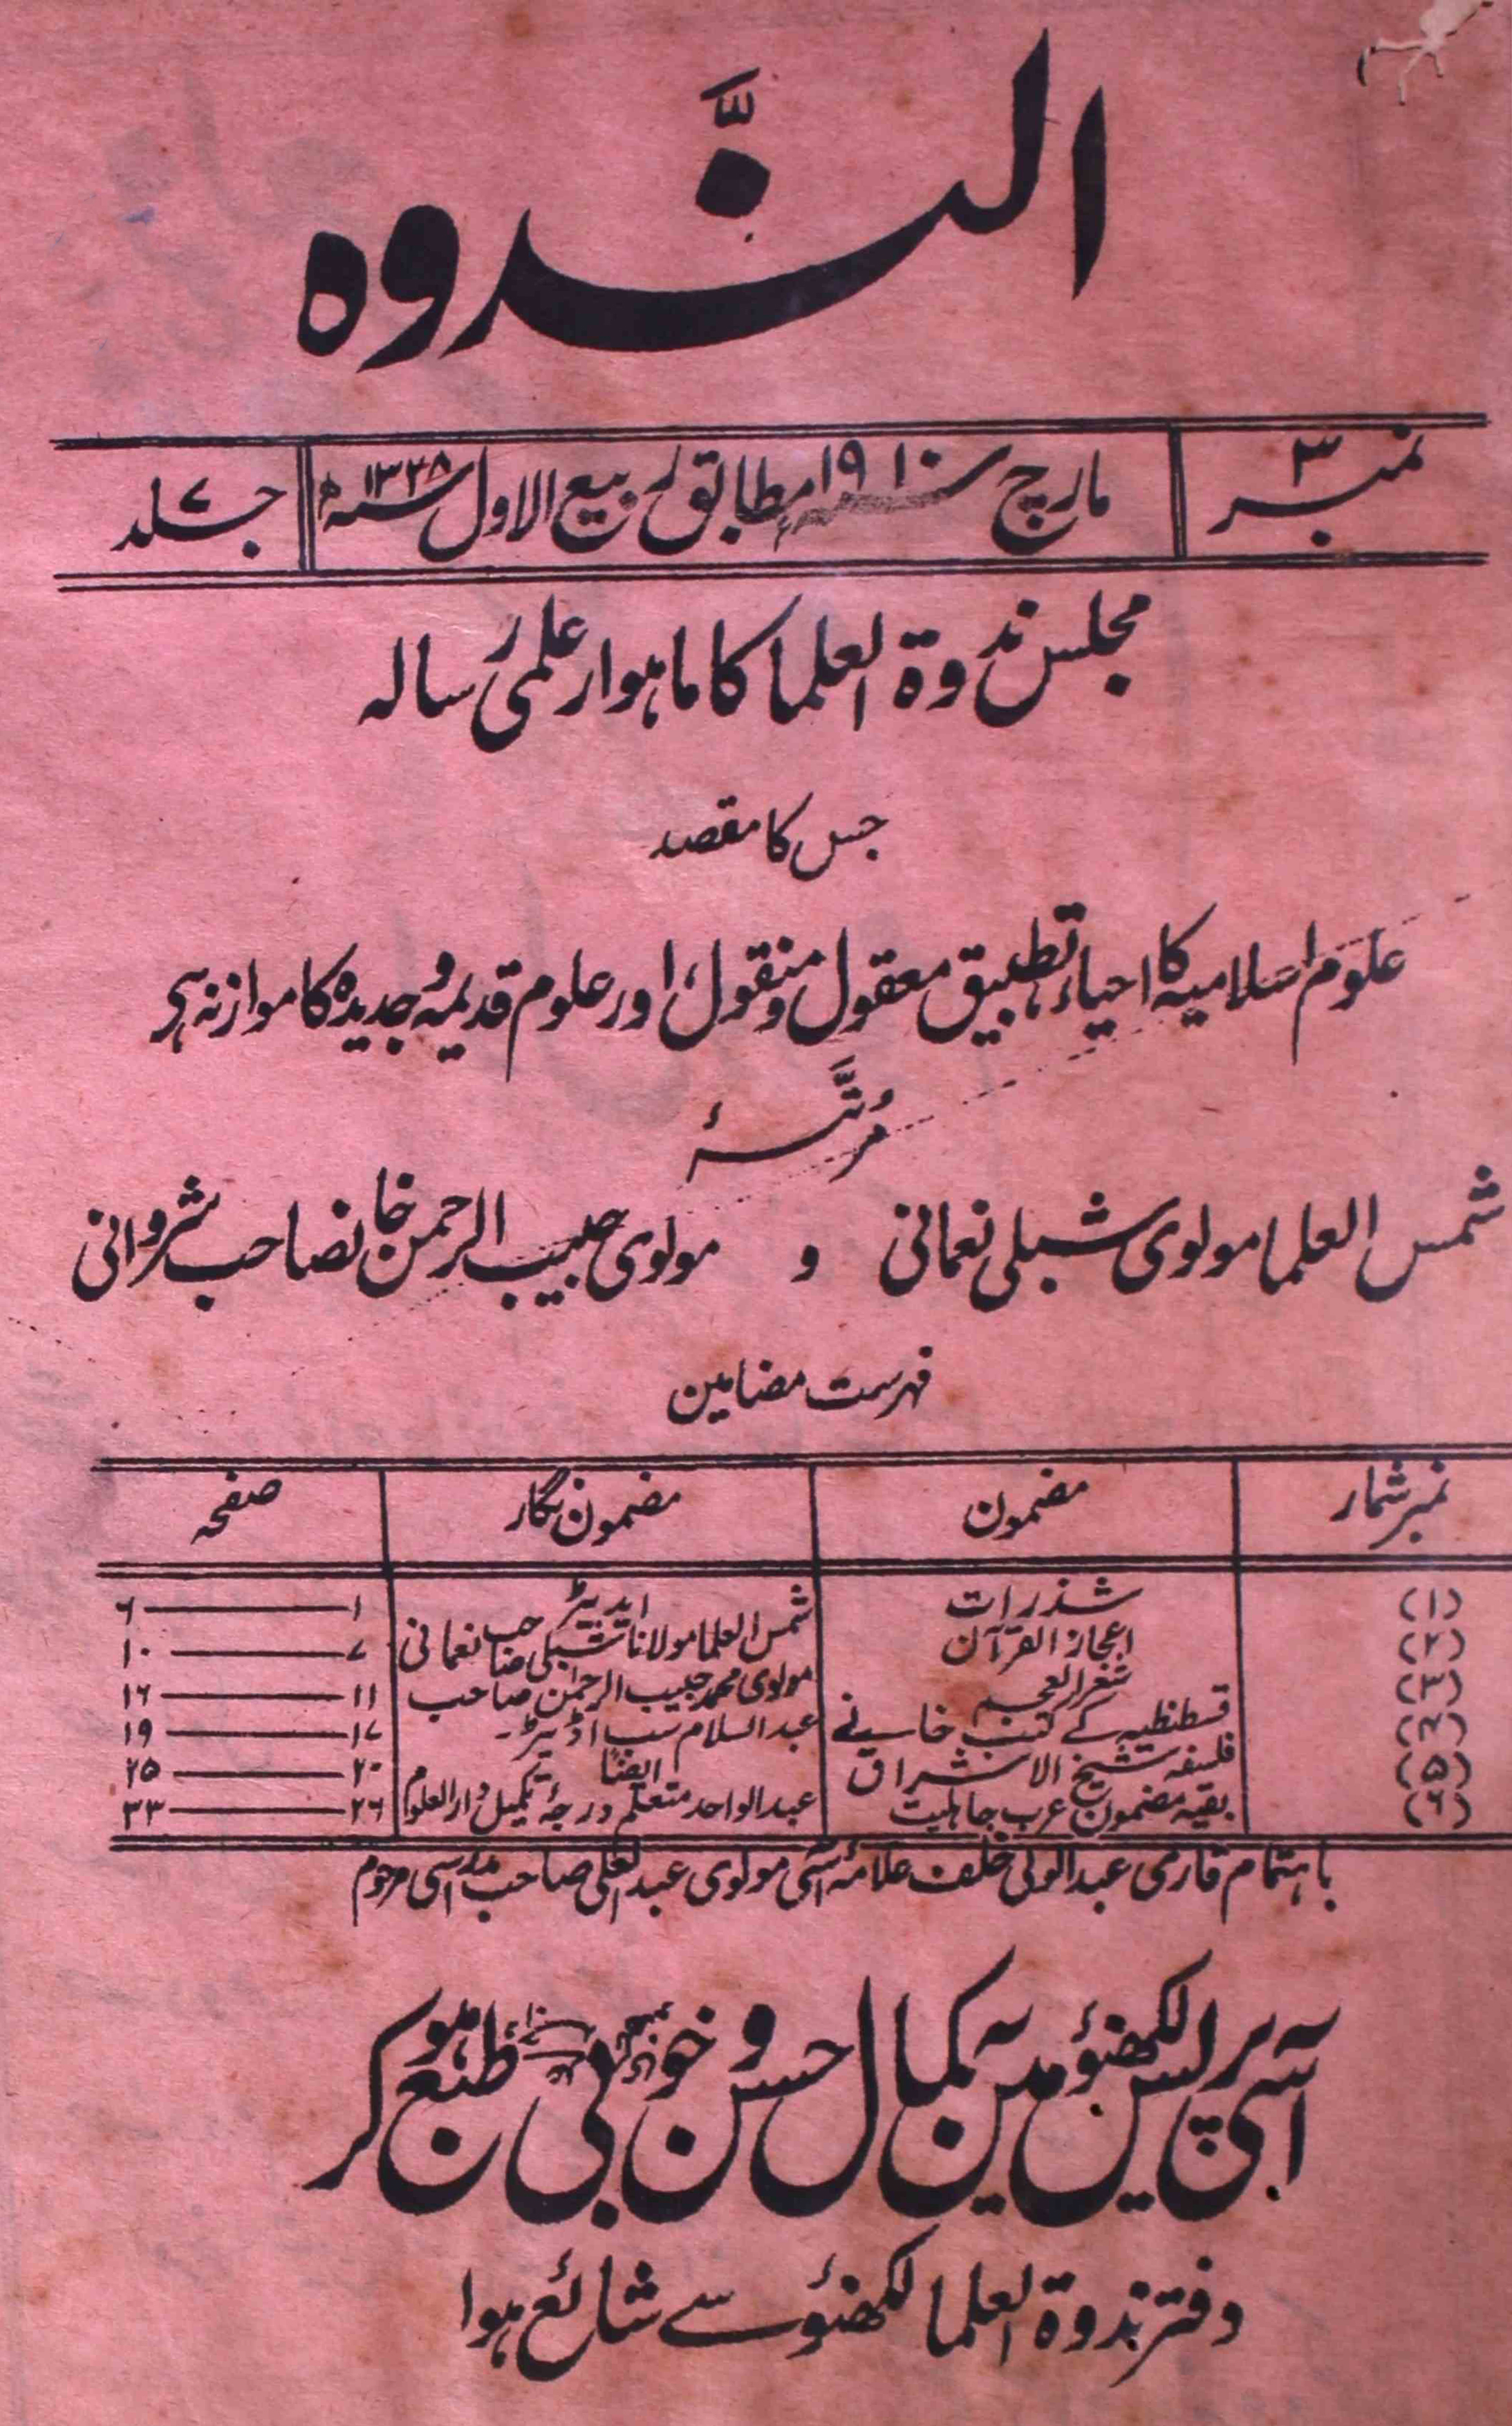 النَّدوہ
نمبر ۳ مارچ سنہ ۱۹۱۰ء مطابق ربیع الاول سنہ ۱۳۲۸ھ جلد ۷
مجلس ندوۃ العلما کا ماہوار علمی رسالہ
جس کا مقصد
علوم اسلامیہ کا احیاء، تطبیق معقول و منقول، اور علوم قدیمہ و جدیدہ کا موازنہ ہی
مُرتَّبۂ
شمس العلما مولوی شبلی نعمانی و مولوی حبیب الرحمن خانصاحب شروانی
فہرست مضامین
نمبر شمار مضمون مضمون نگار صفحہ
(۱) شذرات ایڈیٹر ۱ ــــ ۶
(۲) اعجاز القرآن شمس العلما مولانا شبلی صاحب نعمانی ۷ ــــ ۱۰
(۳) شعر العجم مولوی محمد حبیب الرحمٰن صاحب ۱۱ ــــ ۱۶
(۴) قسطنطنیہ کے کتب خانے عبدالسلام سب اڈیٹر۔ ۱۷ ــــ ۱۹
(۵) فلسفہ شیخ الاشراق ایضاً ۲۰ ــــ ۲۵
(۶) بقیہ مضمون عرب جاہلیت عبدالواحد متعلم درجۂ تکمیل دارالعلوم ۲۶ ــــ ۳۳
باہتمام قاری عبدالولی خلف علامۂ آسی مولوی عبدالعلی صاحب مدراسی مرحوم
آسی پریس لکھنؤ میں بکمال حسن و خوبی طبع ہو کر
دفتر ندوۃ العلما لکھنؤ سے شائع ہوا